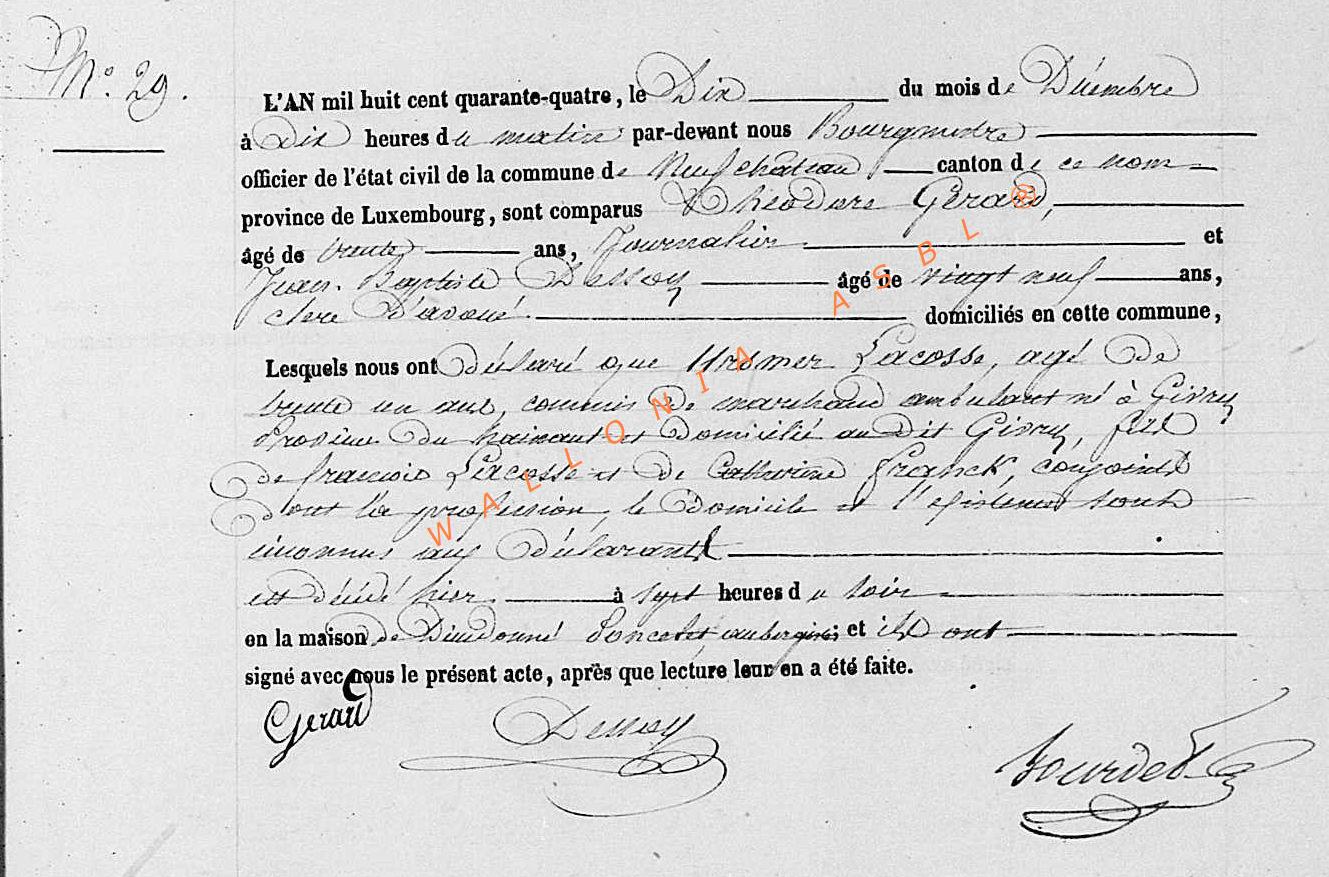 N.º 29.
L'AN mil huit cent quarante-quatre, le Dix du mois de Décembre
à Dix heures du matin par-devant nous Bourgmestre
officier de l'état civil de la commune de Neufchâteau canton de ce nom
province de Luxembourg, sont comparus Théodore Gérard,
âgé de trente ans, Journalier et
Jean-Baptiste Dessoy âgé de vingt neuf ans,
clerc d'avoué. domiciliés en cette commune,
Lesquels nous ont déclaré que Ursmer Lacosse, agé de
trente un ans, commis de marchand ambulant né à Givry
Province du hainaut et domicilié au dit Givry, fils
de francois Lacosse et de Catherine Franck, conjoints
dont la profession, le domicile et l'existence sont
inconnus aux déclarants
est décédé hier à sept heures du soir
en la maison de Dieudonné Poncelet, aubergiste et ils ont
signé avec nous le présent acte, après que lecture leur en a été faite.
Gerard Dessoy
WALLONIA ASBL ®